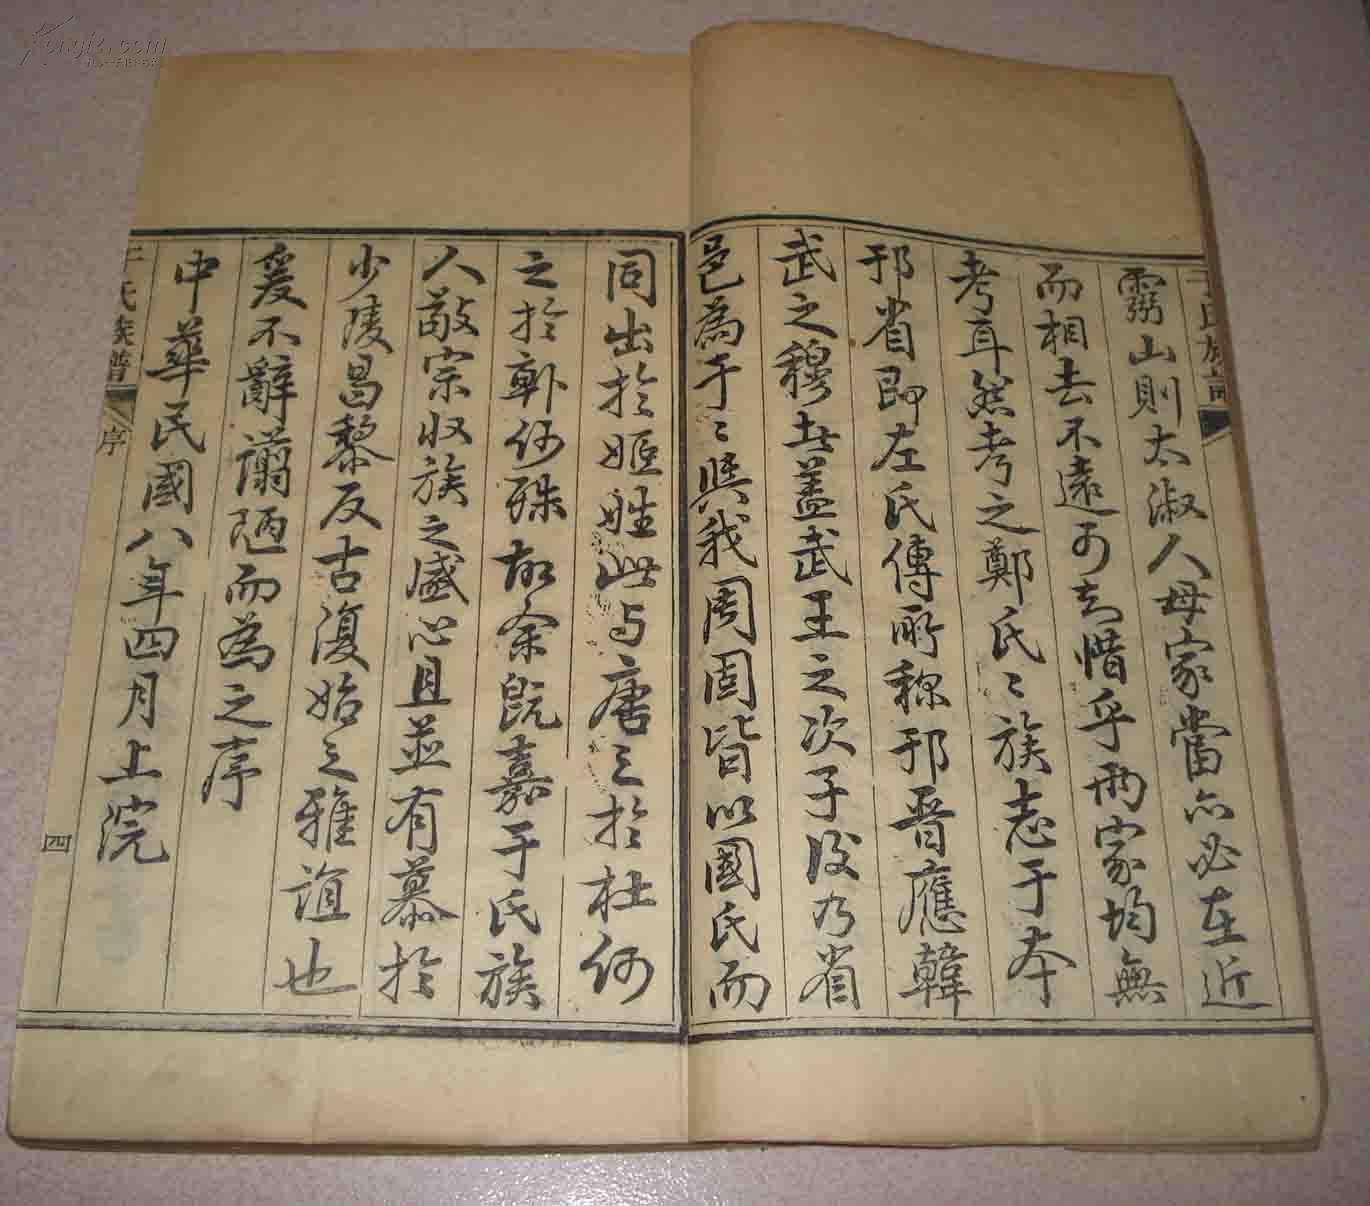 于氏族譜
山則太淑人母家當亦必在近
而相去不遠可知惜乎兩家均無
考耳然考之鄭氏〻族志于本
邘省即左氏傳所稱邘晉應韓
武之穆也蓋武王之次子後乃省
邑為于〻與我周固皆以國氏而
同出於姬姓此与唐之於杜何
之於韓何殊故余既嘉于氏族
人敬宗收族之盛心且並有慕於
少陵昌黎反古復始之雅誼也
爰不辭谫陋而為之序
中華民國八年四月上浣
于氏族譜
序
四